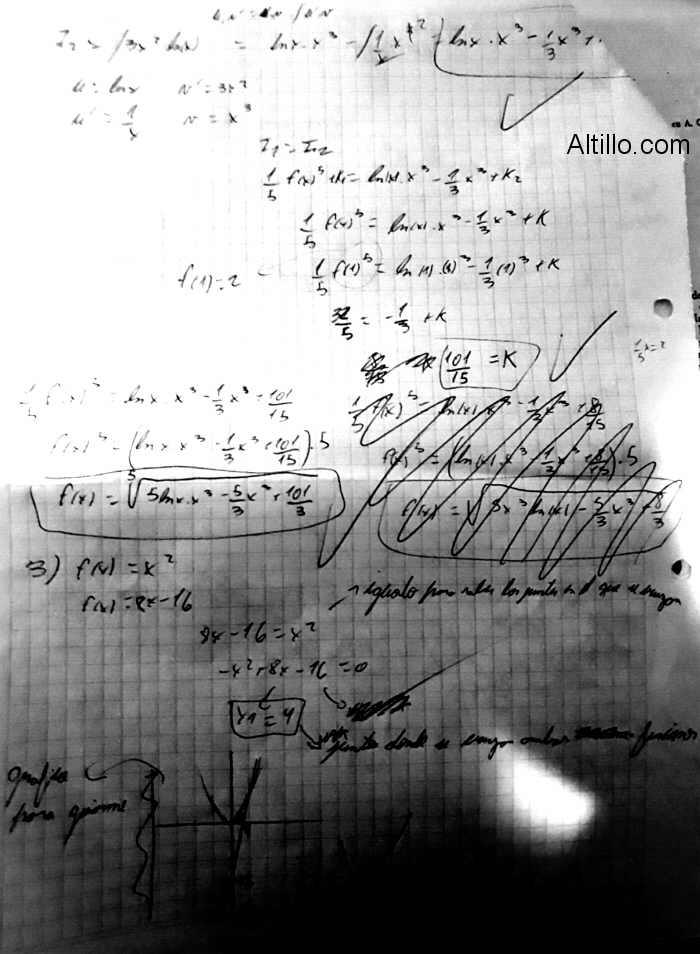 I₂ = ∫3x² lnx) = lnx · x³ - ∫1/x x³ = lnx · x³ - 1/3 x³ +
u = lnx v' = 3x²
u' = 1/x v = x³
Altillo.com
I₁ = I₂
1/5 f(x)⁵ + K₁ = ln(x) · x³ - 1/3 x³ + K₂
1/5 f(x)⁵ = ln(x) · x³ - 1/3 x³ + K
f(1) = 2 1/5 f(1)⁵ = ln(1) · (1)³ - 1/3 (1)³ + K
32/5 = -1/3 + K
101/15 = K
1/5 f(x)⁵ = lnx x³ - 1/3 x³ + 101/15
f(x)⁵ = (lnx x³ - 1/3 x³ + 101/15) . 5
f(x) = ⁵√5lnx · x³ - 5/3 x³ + 101/3
1/5 f(x)⁵ = ln(x) x³ - 1/3 x³ + 8/15
f(x)⁵ = (ln(x) · x³ - 1/3 x³ + 8/15) . 5
f(x) = √5x³ ln(x) - 5/3 x³ + 8/3
3) f(x) = x²
f(x) = 8x - 16
igualo para saber los puntos en el que se cruzan
8x - 16 = x²
-x² + 8x - 16 = 0
x₁ = 4
punto donde se cruzan ambas funciones
Grafico
para guiarme